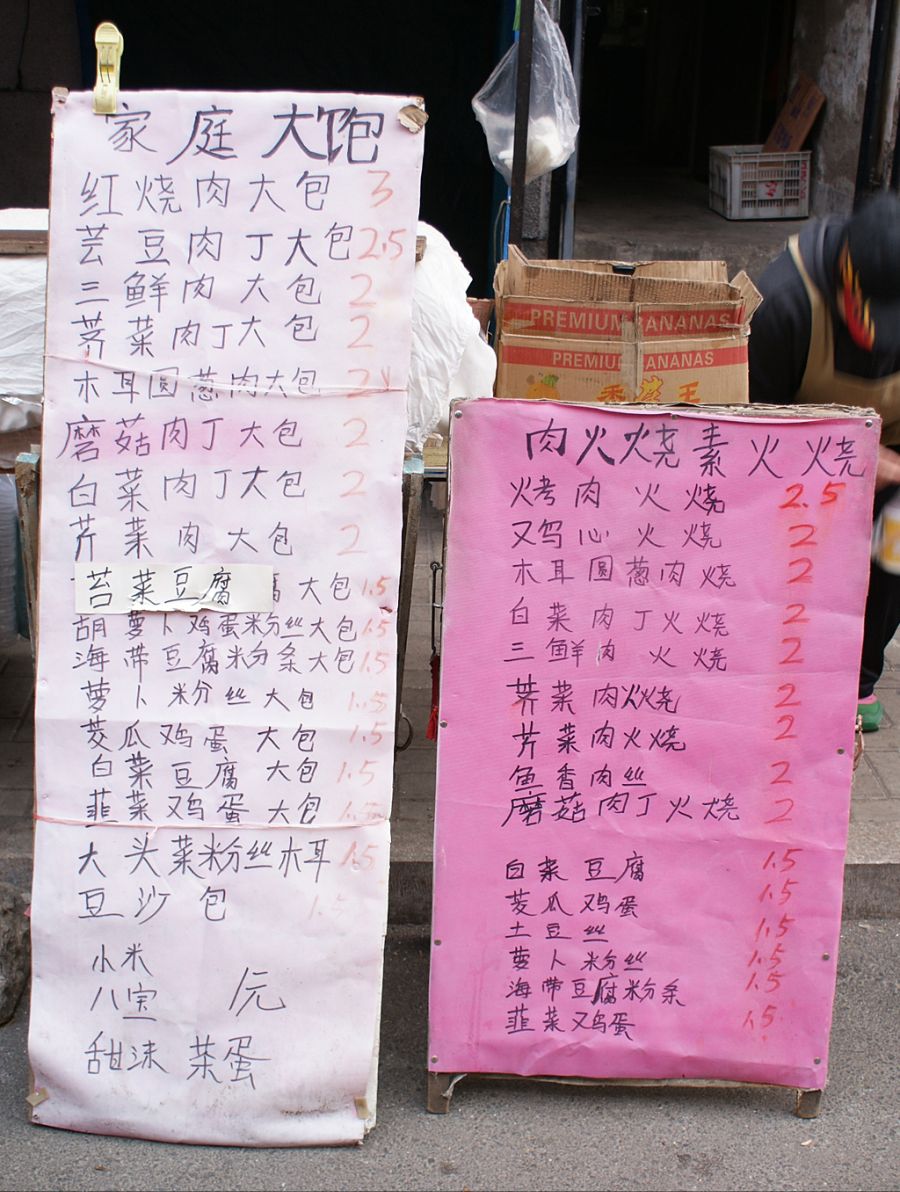 家庭大饱
红烧肉大包 3
芸豆肉丁大包 2.5
三鲜肉大包 2
荠菜肉丁大包 2
木耳圆葱肉大包 2
磨菇肉丁大包 2
白菜肉丁大包 2
芹菜肉大包 2
苔菜豆腐 腐大包 1.5
胡萝卜鸡蛋粉丝大包 1.5
海带豆腐米分条大包 1.5
萝卜粉丝大包 1.5
茭瓜鸡蛋大包 1.5
白菜豆腐大包 1.5
韭菜鸡蛋大包 1.5
大头菜粉丝木耳 1.5
豆沙包 1.5
小米
八宝 1元
甜沫 茶蛋
PREMIUM BANANAS
PREMIUM BANANAS
香蕉王
肉火烧素火烧
烤肉火烧 2.5
鸡心火烧 2
木耳圆葱肉烧 2
白菜肉丁火烧 2
三鲜肉火烧 2
荠菜肉火烧 2
芹菜肉火烧 2
鱼香肉丝 2
磨菇肉丁火烧 2
白菜豆腐 1.5
茭瓜鸡蛋 1.5
土豆丝 1.5
萝卜粉丝 1.5
海带豆腐粉条 1.5
韭菜鸡蛋 1.5